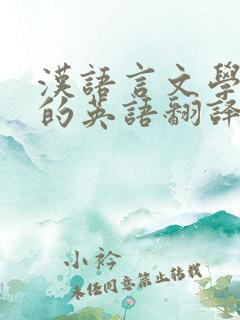 漢語言文學
的英語翻譯
小衿
未经同意禁止转载